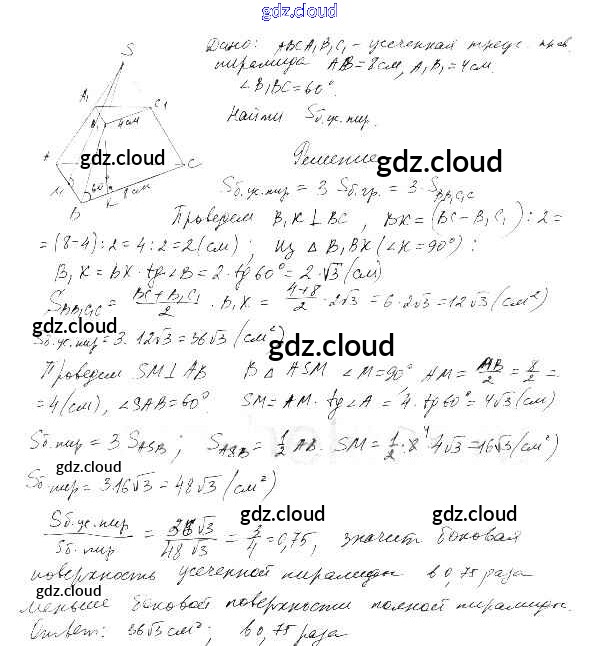 gdz.cloud
S
Дано: ABCA₁B₁C₁ - усеченная треуг. прав.
пирамида AB=8см, A₁B₁=4см.
∠B₁BC=60°.
Найти Sб.ус.пир.
A₁ C₁
B₁ 4см
A C
M 60°
B K 8см
gdz.cloud
Решение
gdz.cloud
Sб.ус.пир = 3 Sб.гр. = 3·S BB₁C₁C
Проведем B₁K⊥BC, BK=(BC-B₁C₁):2=
=(8-4):2=4:2=2(см); из △B₁BK(∠K=90°):
gdz.cloud
B₁K=BK·tg∠B=2·tg60°=2·√3(см)
S BB₁C₁C = (BC+B₁C₁)/2 · B₁K = (4+8)/2 · 2√3 = 6·2√3 = 12√3 (см²)
gdz.cloud
Sб.ус.пир=3·12√3=36√3 (см²)
gdz.cloud
Проведем SM⊥AB В △ASM ∠M=90°, AM=AB/2=8/2=
=4(см), ∠SAB=60°. SM=AM·tg∠A=4·tg60°=4√3(см)
Sб.пир=3 S ASB; S ASB=1/2 AB·SM=1/2·8·4√3=16√3(см²)
gdz.cloud
Sб.пир=3·16√3=48√3 (см²)
gdz.cloud gdz.cloud
Sб.ус.пир/Sб.пир = 36√3/48√3 = 3/4=0,75, значит боковая
поверхность усеченной пирамиды в 0,75 раза
gdz.cloud
меньше боковой поверхности полной пирамиды.
gdz.cloud
Ответ: 36√3 см²; в 0,75 раза